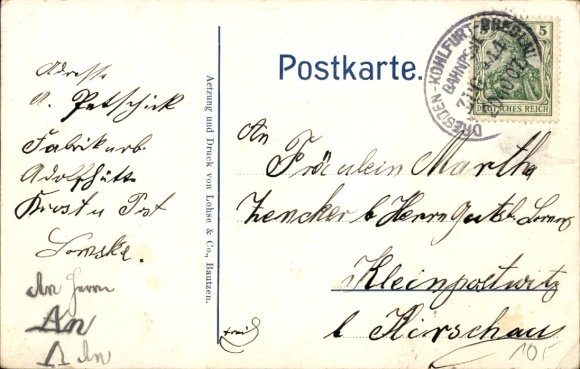 Postkarte.
DRESDEN-KOHLFURT-BRESLAU
BAHNPOST
5
DEUTSCHES REICH
Adresse
A. Petschick
Fabrikarb.
Adolfshütte
Crosta Post
Lomske.
An Herrn
An
An
Aetzung und Druck von Lohse & Co., Bautzen.
An
Fräulein Martha
Zencker b Herrn Gutsb.
Kleinpostwitz
b Kirschau
10,-